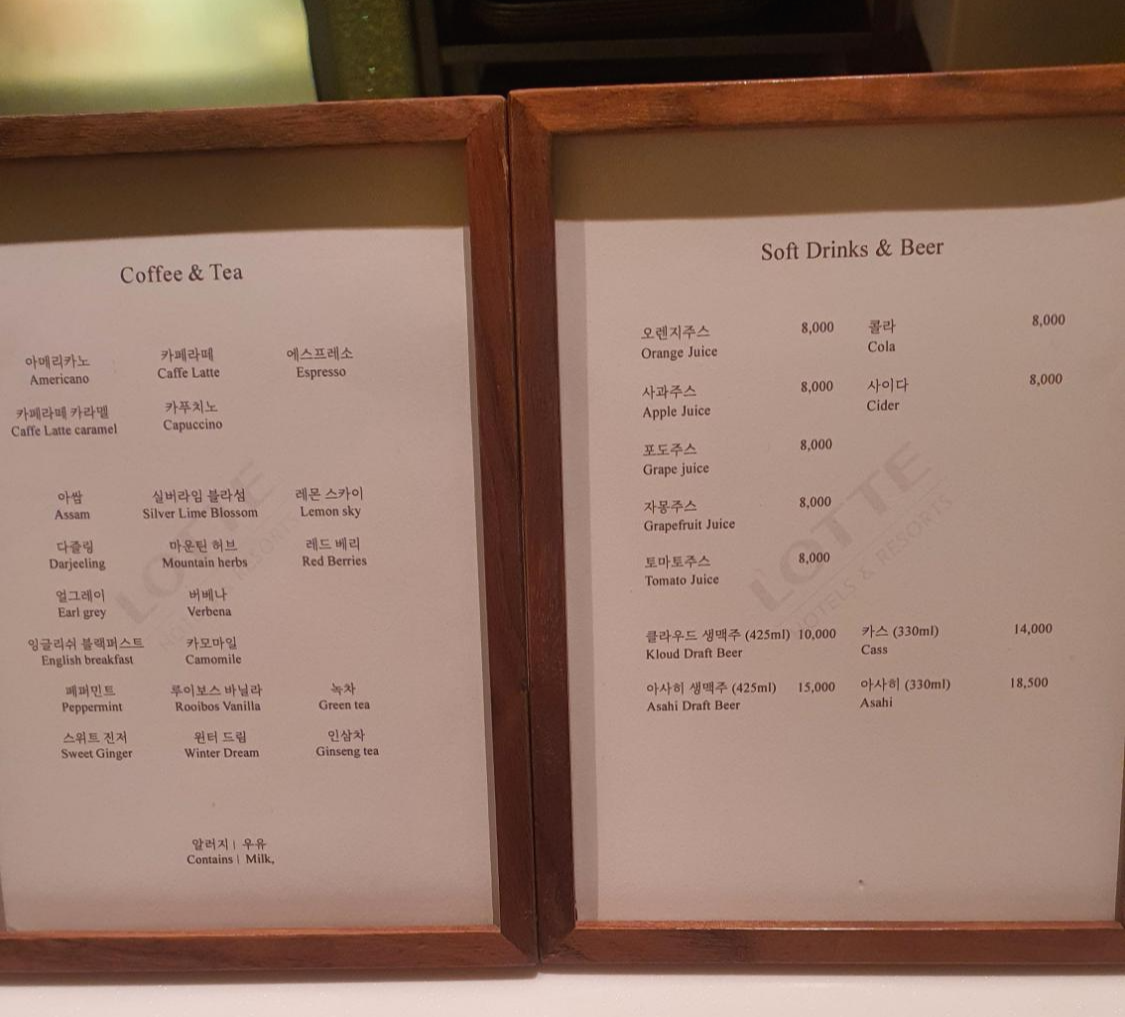 Coffee & Tea
아메리카노 카페라떼 에스프레소
Americano Caffe Latte Espresso
카페라떼 카라멜 카푸치노
Caffe Latte caramel Capuccino
아쌈 실버라임 블라섬 레몬 스카이
Assam Silver Lime Blossom Lemon sky
다즐링 마운틴 허브 레드 베리
Darjeeling Mountain herbs Red Berries
얼그레이 버베나
Earl grey Verbena
잉글리쉬 블랙퍼스트 카모마일
English breakfast Camomile
페퍼민트 루이보스 바닐라 녹차
Peppermint Rooibos Vanilla Green tea
스위트 진저 윈터 드림 인삼차
Sweet Ginger Winter Dream Ginseng tea
알러지 | 우유
Contains | Milk,
LOTTE
HOTELS & RESORTS
Soft Drinks & Beer
오렌지주스 8,000 콜라 8,000
Orange Juice Cola
사과주스 8,000 사이다 8,000
Apple Juice Cider
포도주스 8,000
Grape juice
자몽주스 8,000
Grapefruit Juice
토마토주스 8,000
Tomato Juice
클라우드 생맥주 (425ml) 10,000 카스 (330ml) 14,000
Kloud Draft Beer Cass
아사히 생맥주 (425ml) 15,000 아사히 (330ml) 18,500
Asahi Draft Beer Asahi
LOTTE
HOTELS & RESORTS